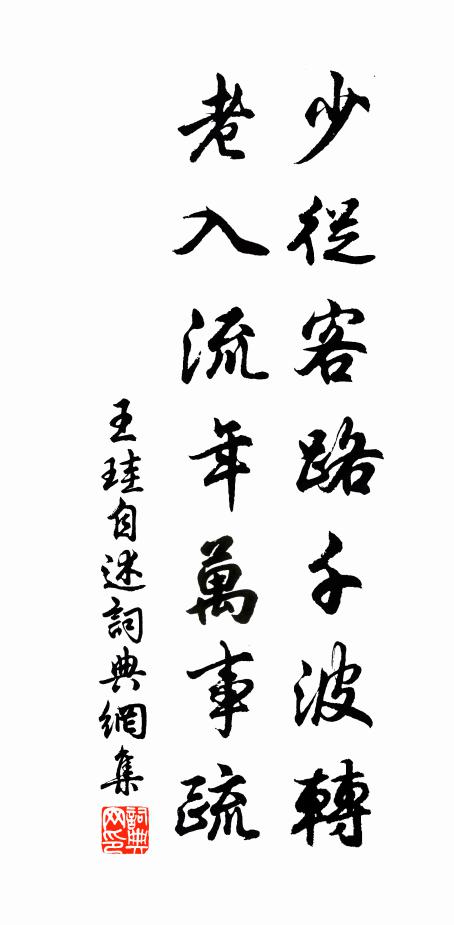 少從客路千波轉
老入流年萬事疏
王珪自述詞典網集
詞典網印